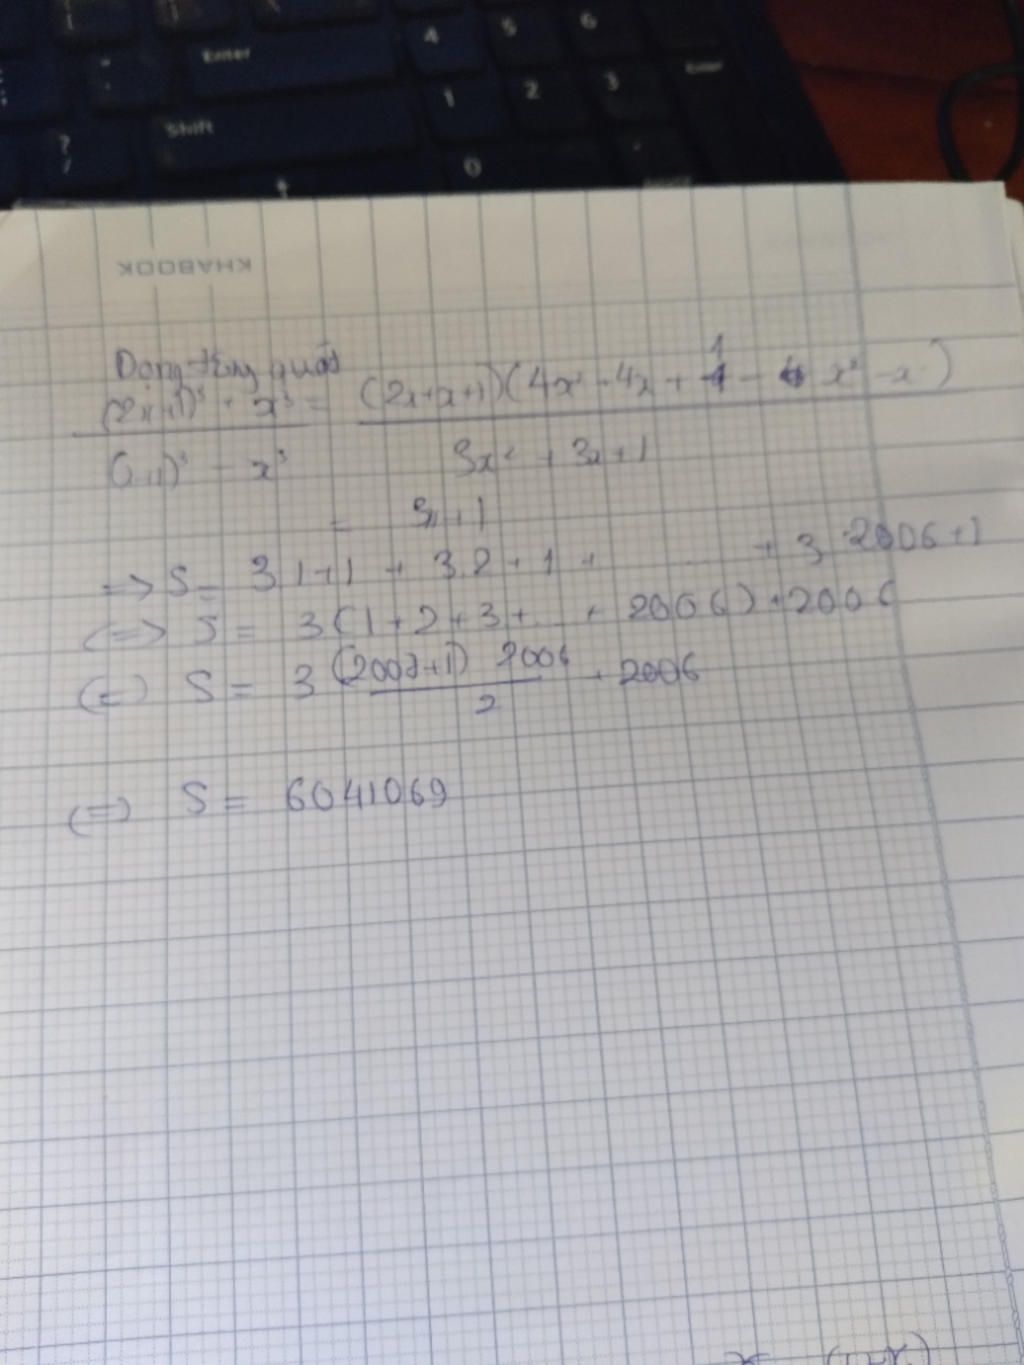 Enter
4
5
6
Shift
1
2
3
Enter
?
/
0
KHABOOK
Dạng tổng quát
(2x+1)³ + x³ = (2x+x+1)(4x² + 4x + 1 - x² - x)
(x+1)³ - x³ 3x² + 3x + 1
= 3x+1
=> S = 3.1+1 + 3.2+1 + + 3.2006+1
(=) S = 3(1+2+3+...+2006)+2006
(=) S = 3 (2007+1) 2006 + 2006
2
(=) S = 6041069